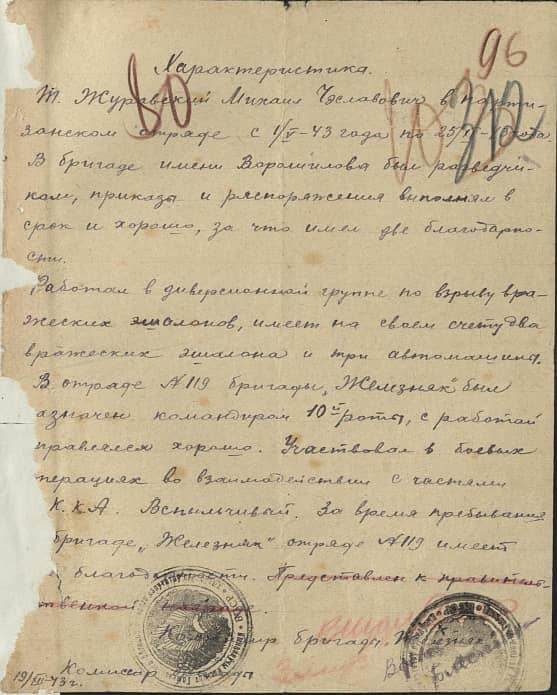 96
80
Характеристика.
Т. Журавский Михаил Чеславович в парти-
занском отряде с 1/V-43 года по 25/
В бригаде имени Ворошилова был разведчи-
ком, приказы и распоряжения выполнял в
срок и хорошо, за что имел две благодарно-
сти.
Работал в диверсионной группе по взрыву вра-
жеских эшалонов, имеет на своем счету два
вражеских эшалона и три автомашины.
В отряде N 119 бригады „Железняк" был
азначен командиром 10й роты, с работой
правлялся хорошо. Участвовал в боевых
перациях во взаимодействии с частями
К.К.А. Вспыльчивый. За время пребывания
бригаде „Железняк" отряде N 119 имеет
благодарности. Представлен к правитель-
ственной
бригады
Комиссар
19/